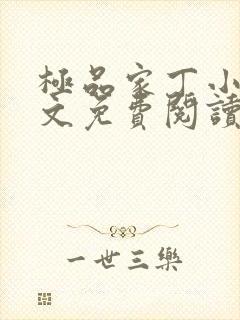 極品家丁小
文免費閱讀
一世三樂